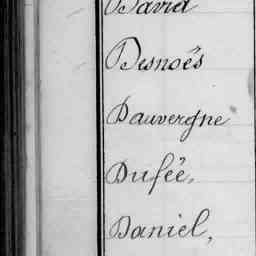 David
Desnoës
Dauvergne
Dufëe,
Daniel,